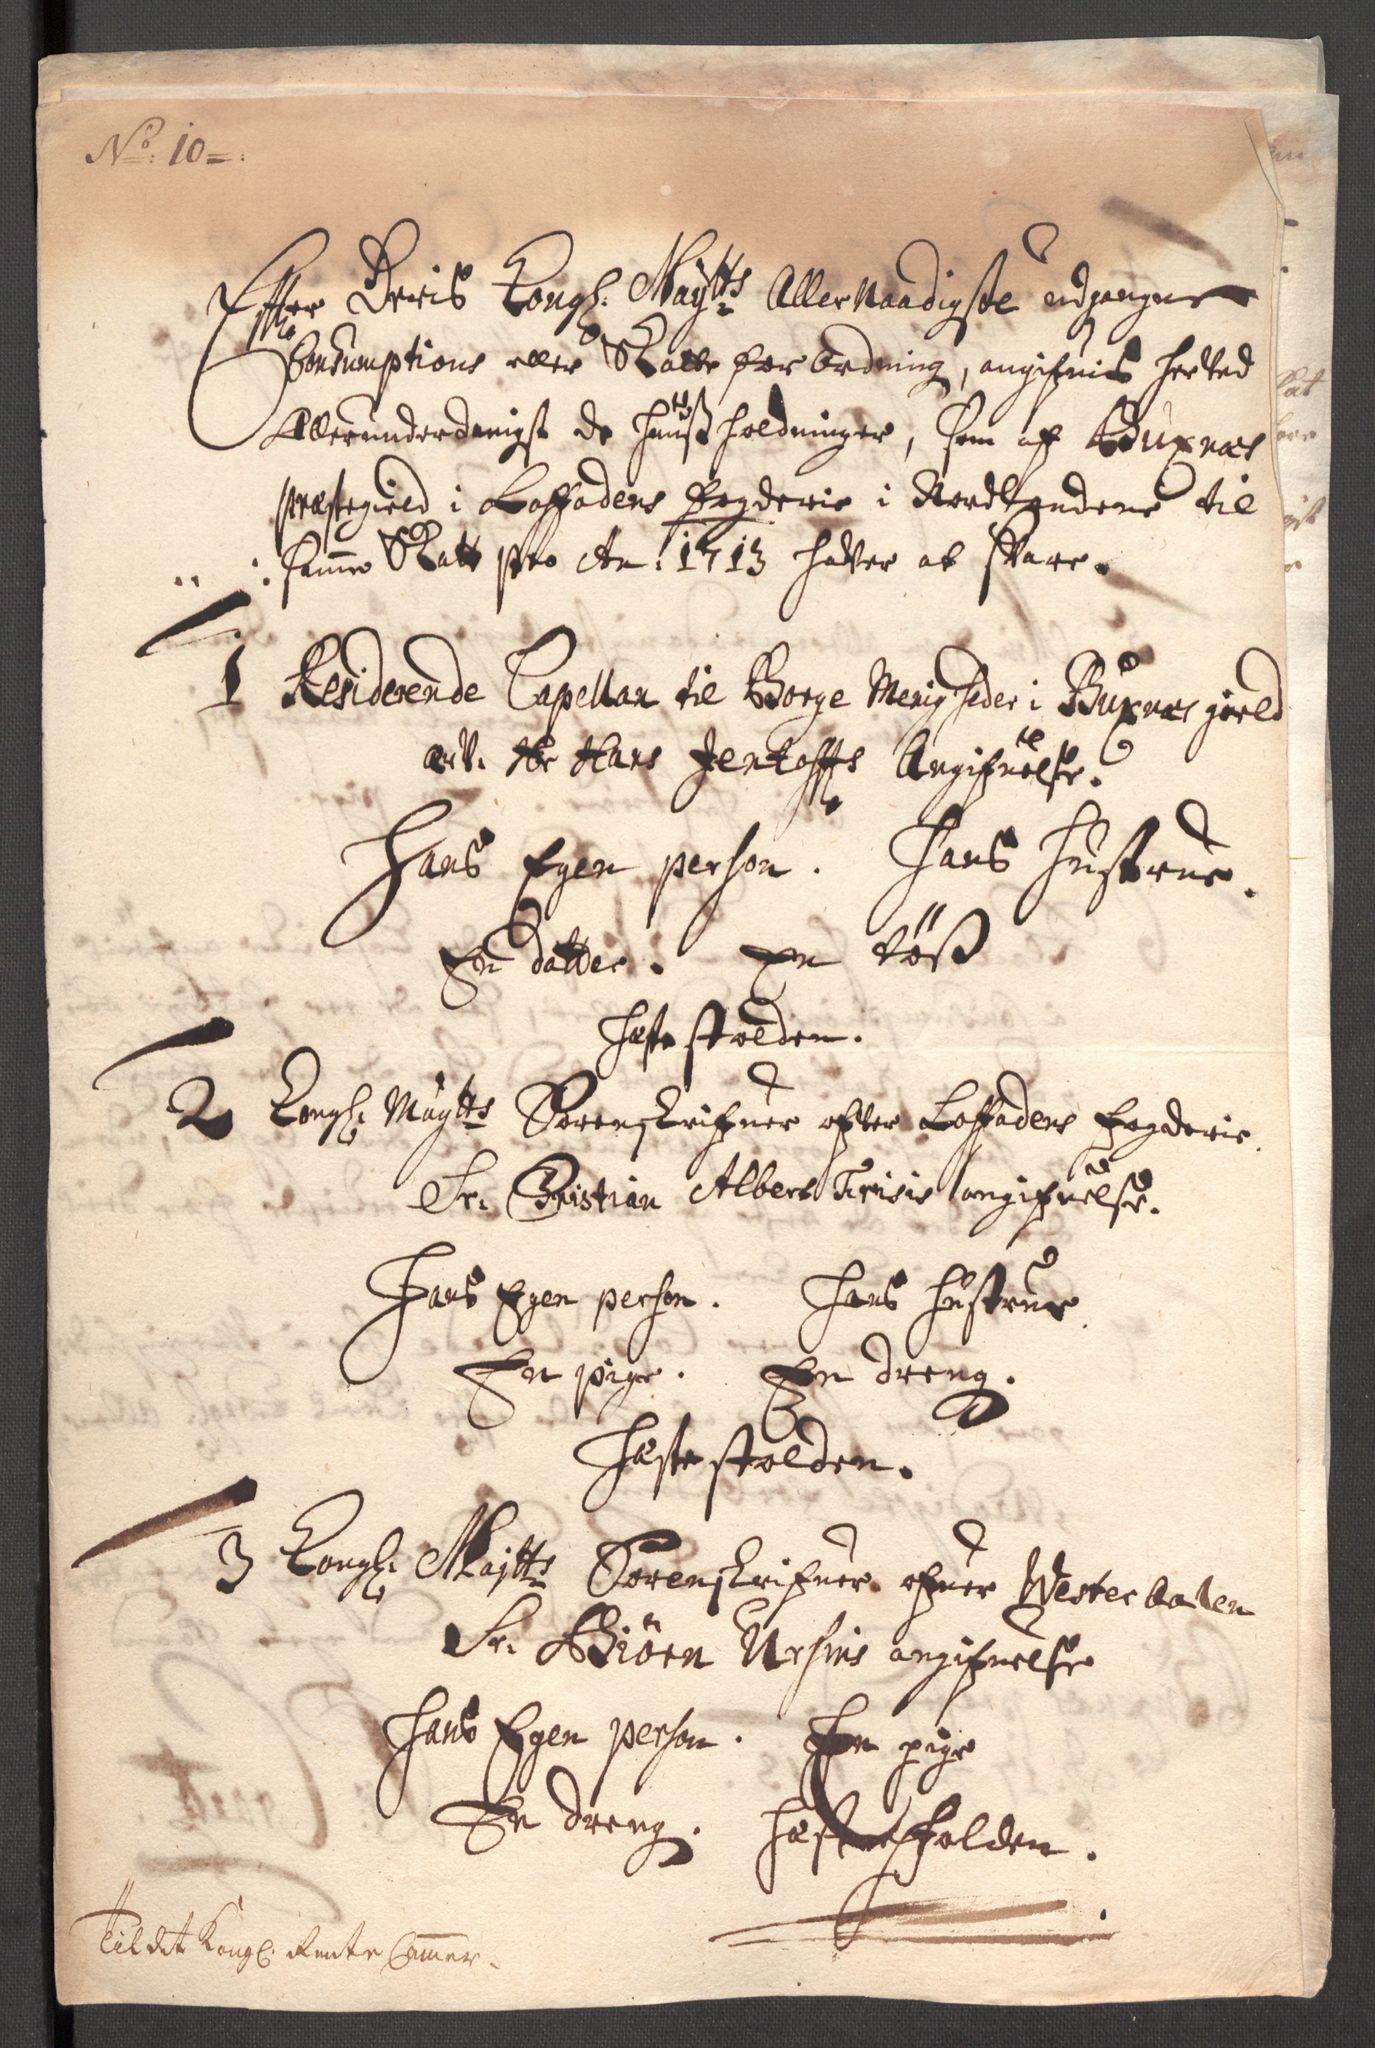 No: 10
Effter Deris Kongl: Maÿtts Aller Naadigste udgangne
Consumptions eller Skatte forordning, angifuis herved
Allerunderdanigst de huusholdninger, som af Buxnæs
præstegield i Loffodens fogderie i Nordlandene til
samme Skatt pro An: 1713 hafver at svare.
1 Residerende Capellan til Borge Menigheder i Buxnæs gield
Hr Hans Jentofts Angifuelse.
Hans Egen person. Hans Hustrue.
En datter. En töß
Hæste skolden.
2 Kongl: Maÿtts Sorenskrifuer ofver Loffodens fogderie.
Sr. Christian Albert angifuelse.
Hans Egen person. Hans Hustrue
En pige. En dreng.
Hæste skolden.
3 Kongl: Maÿtts Sorenskrifuer ofuer Westeraalen
Sr. Biörn Ursins angifuelse
Hans Egen person. En pige
En dreng. Hæste skolden.
Til det Kongl. Rente Cammer.